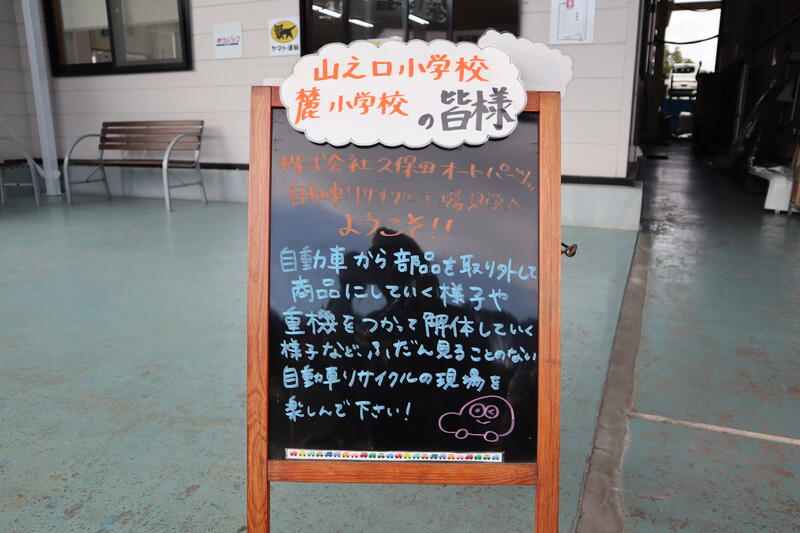 ゆうパック
ヤマト運輸
山之口小学校
麓小学校
の皆様
株式会社久保田オートパーツの
自動車リサイクル工場見学へ
ようこそ!!
自動車から部品を取り外して
商品にしていく様子や
重機をつかって解体していく
様子など、ふだん見ることのない
自動車リサイクルの現場を
楽しんで下さい!